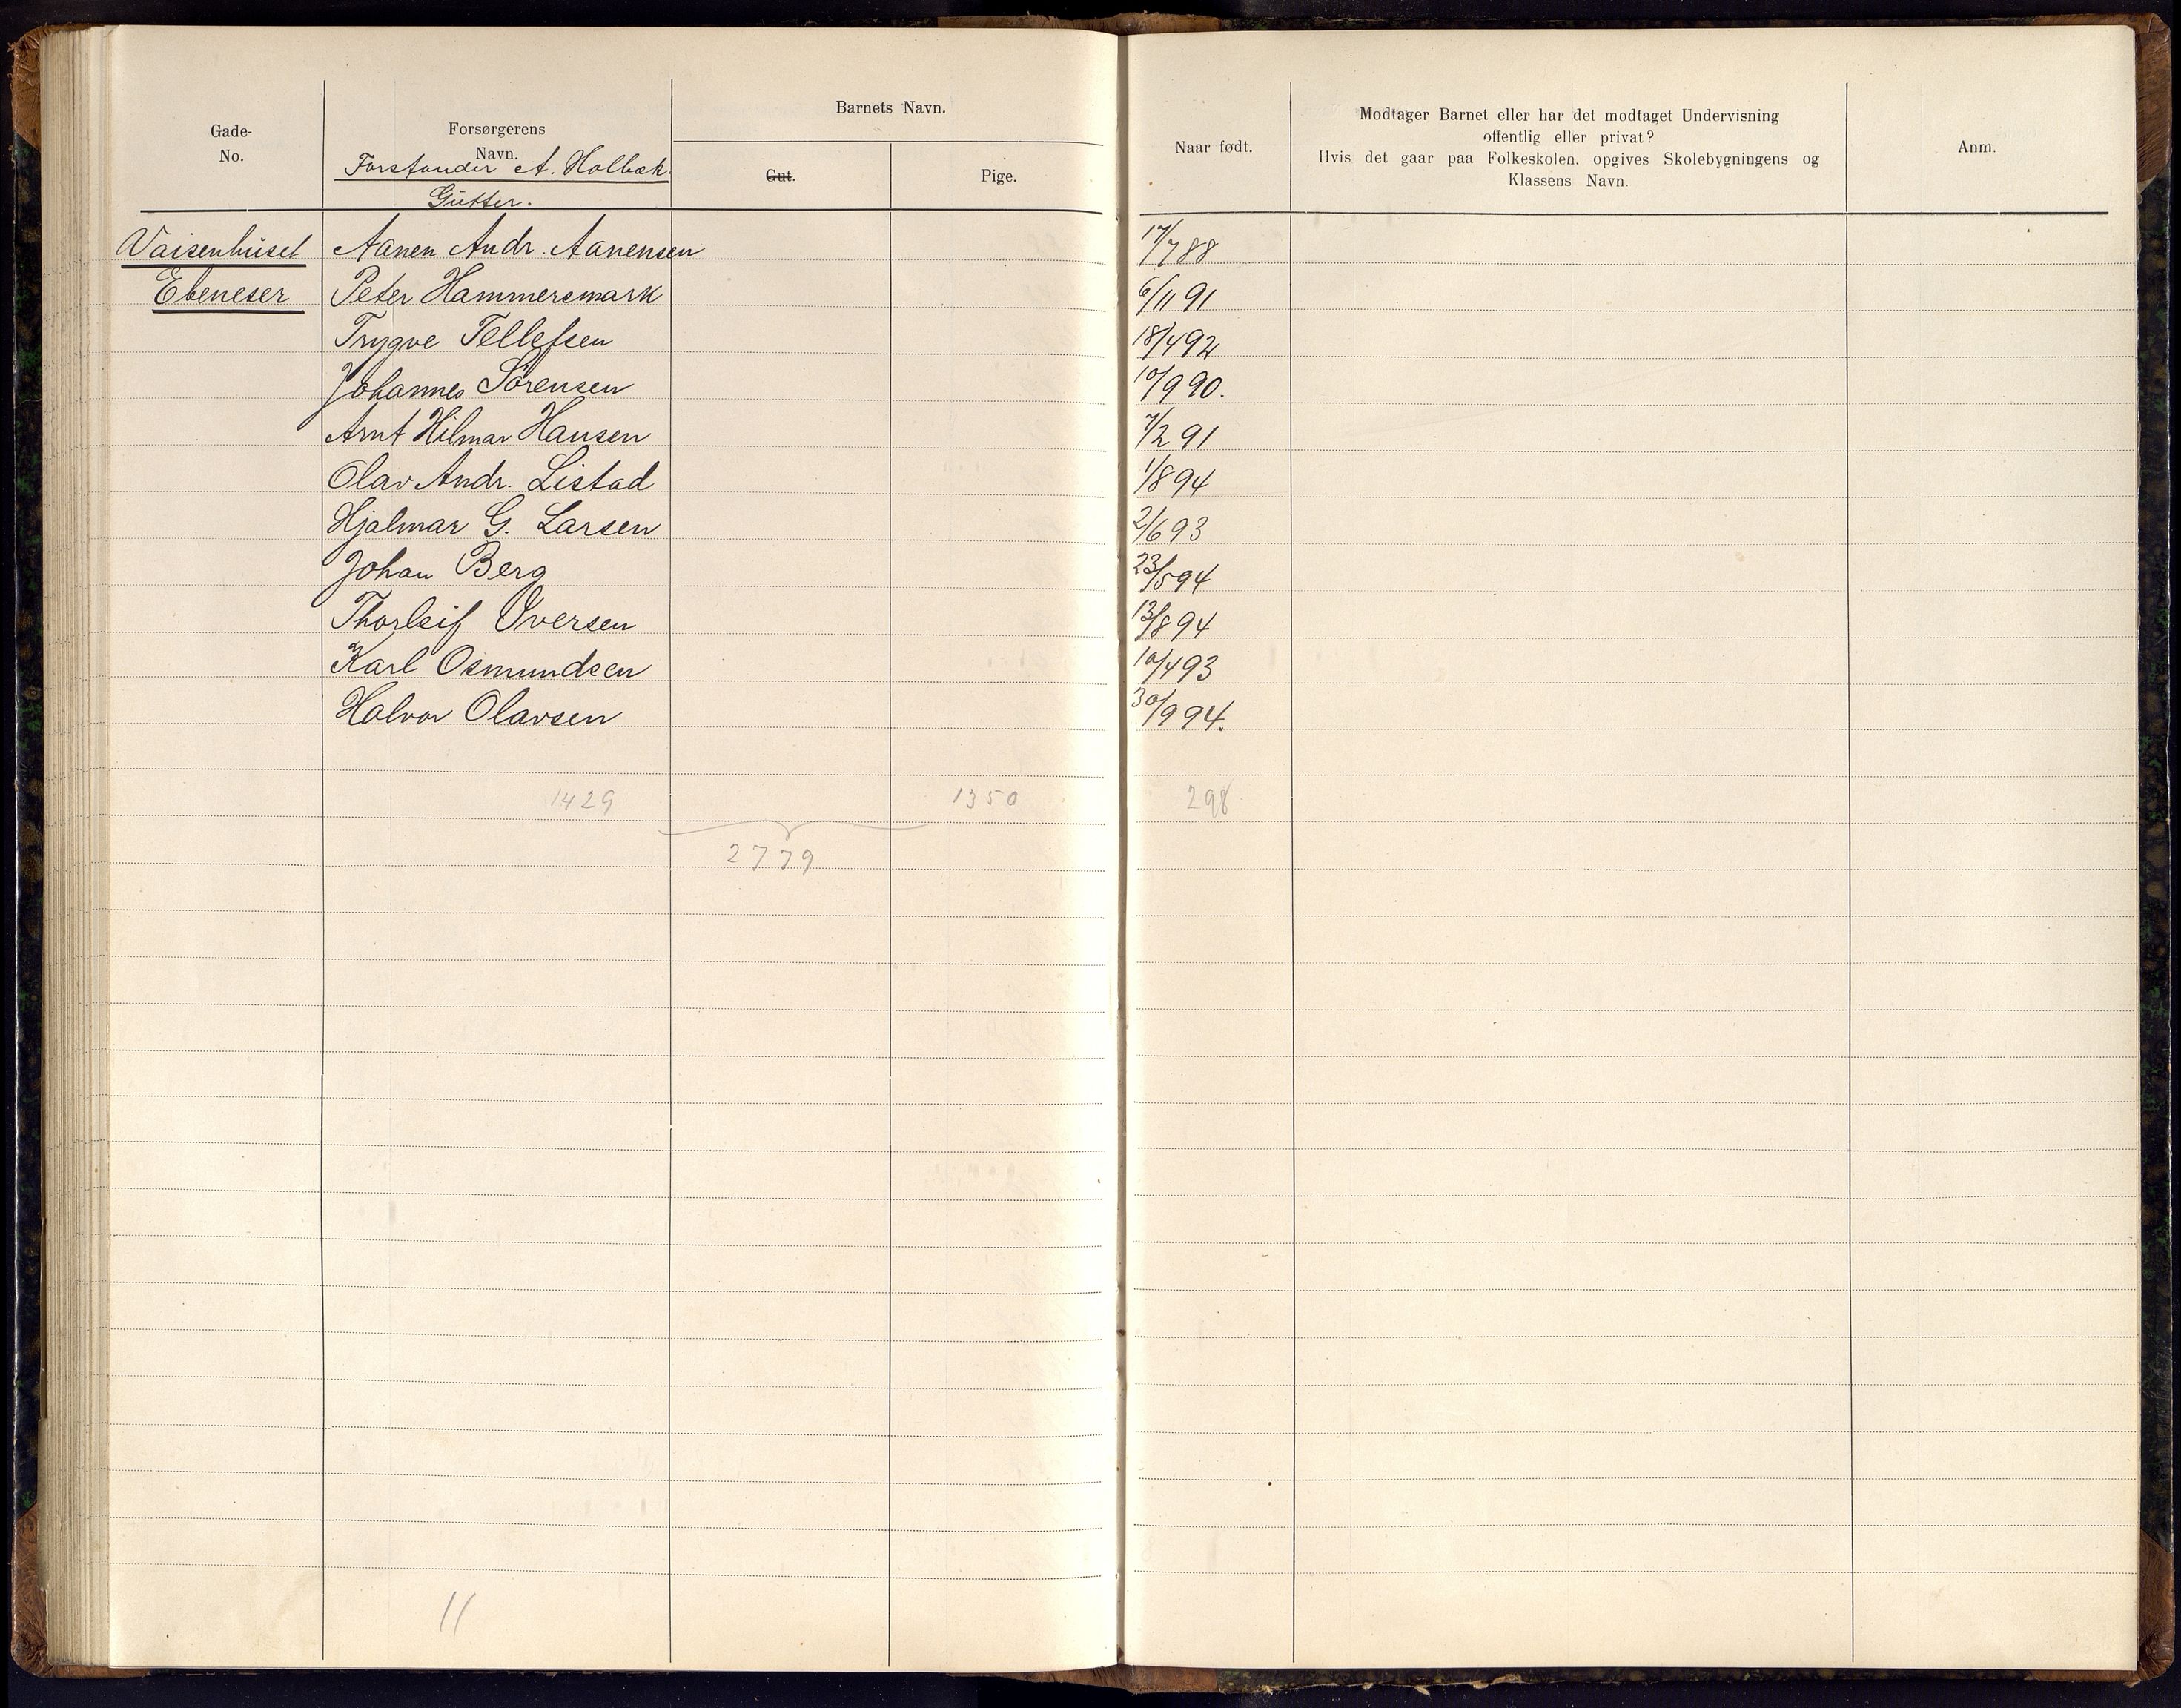 Gade-
No.
Forsørgerens
Navn.
Forstander A. Holbæk.
Gutter.
Barnets Navn.
Gut.
Pige.
Naar født.
Modtager Barnet eller har det modtaget Undervisning
offentlig eller privat?
Hvis det gaar paa Folkeskolen, opgives Skolebygningens og
Klassens Navn.
Anm.
Vaisenhuset Aanen Andr. Aanensen 17/7 88
Ebeneser Peter Hammersmark 6/11 91
Trygve Tellefsen 18/4 92
Johannes Sörensen 10/9 90.
Arnt Hilmar Hansen 7/2 91
Olav Andr. Listad 1/8 94
Hjalmar G. Larsen 2/6 93
Johan Berg 23/5 94
Thorleif Iversen 13/8 94
Karl Osmundsen 10/4 93
Halvor Olavsen 30/9 94.
1429 1350 298
2779
11